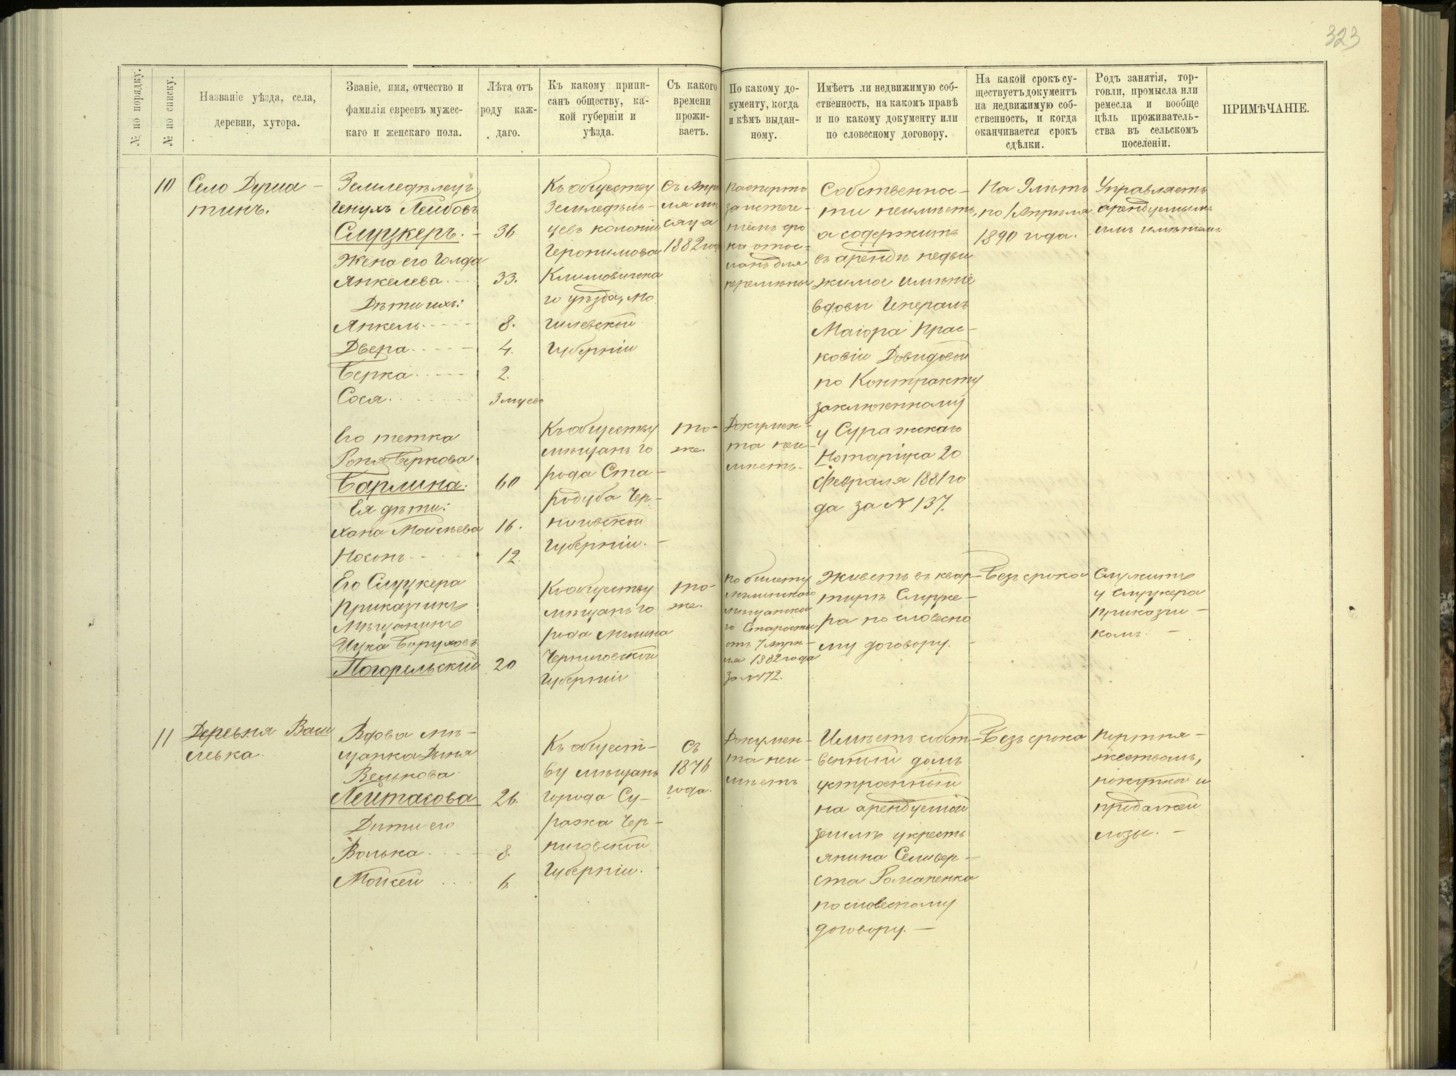 323
№ по порядку.
№ по списку.
Названіе уѣзда, села,
деревни, хутора.
Званіе, имя, отчество и
фамилія евреевъ мужес-
каго и женскаго пола.
Лѣта отъ
роду каж-
даго.
Къ какому припи-
санъ обществу, ка-
кой губерніи и
уѣзда.
Съ какого
времени
прожи-
ваетъ.
По какому до-
кументу, когда
и кѣмъ выдан-
ному.
Имѣетъ ли недвижимую соб-
ственность, на какомъ правѣ
и по какому документу или
по словесному договору.
На какой срокъ су-
ществуетъ документъ
на недвижимую соб-
ственность, и когда
оканчивается срокъ
сдѣлки.
Родъ занятія, тор-
говли, промысла или
ремесла и вообще
цѣль проживатель-
ства въ сельскомъ
поселеніи.
ПРИМѢЧАНІЕ.
10
Село Душа-
тинъ.
Земледѣлецъ
Лейбовъ
Слуцкеръ. -
Жена его Голда
Янкелева
Дѣти ихъ:
Янкель
Двера
Берка
Сося
36
33.
8.
4.
2.
3 мѣсяц
Къ обществу
Земледѣль-
цевъ колоніи
Климовичска
го уѣзда, Мо
гилевской
Губерніи
Съ Апрѣ
ля мѣ
сяца
1882 года
Паспортъ
за истече-
ніемъ сро
ка отос-
ланъ для
перемѣны
Собственнос-
ти неимѣетъ,
а содержитъ
въ арендѣ недви
жимое имѣніе
вдовы Генералъ
Маіора Прас-
ковіи Давидовой
по Контракту
заключенному
у Суражскаго
Нотаріуса 20
Февраля 1881 го
да за № 137.
На 9 лѣтъ
по 1 Апрѣля
1890 года.
Управляетъ
арендуемымъ
имъ имѣніемъ
Его тетка
Беркова
Барлина.
Ея дѣти:
Хана Моисѣева
Носонъ
60
16.
12.
Къ обществу
мѣщанъ го
рода Ста-
родуба Чер-
ниговской
Губерніи. -
То-
же.
Докумен-
та неи-
мѣетъ.
Его Слуцкера
Прикащикъ
Мѣщанинъ
Ицка Боруховъ
Погорельскій
20
Къ обществу
мѣщанъ го
рода Мглина
Черниговской
Губерніи
То-
же.
По билету
Мглинскаго
Мѣщанска
го Старосты
отъ 7 Апрѣ
ля 1882 года
за № 172.
Живетъ въ квар-
тирѣ Слуцке-
ра по словесно
му договору. -
Безъ срока
Служитъ
у Слуцкера
Прикащи-
комъ. -
11
Деревня Васи
левка.
Вдова мѣ-
щанка Дыня
Велькова
Лейтасова
Дѣти его
Волька
Мойсей
26.
8.
6.
Къ общест-
ву мѣщанъ
города Су-
ража Чер-
ниговской
Губерніи.
Съ
1876
года.
Докумен-
та неи-
мѣетъ
Имѣетъ собст-
венный домъ
устроенный
на арендуемой
землѣ у кресть
янина Селивер-
ста Романенка
по словесному
договору. -
Безъ срока
Портня-
жествомъ,
покупка и
продажей
лозы. -